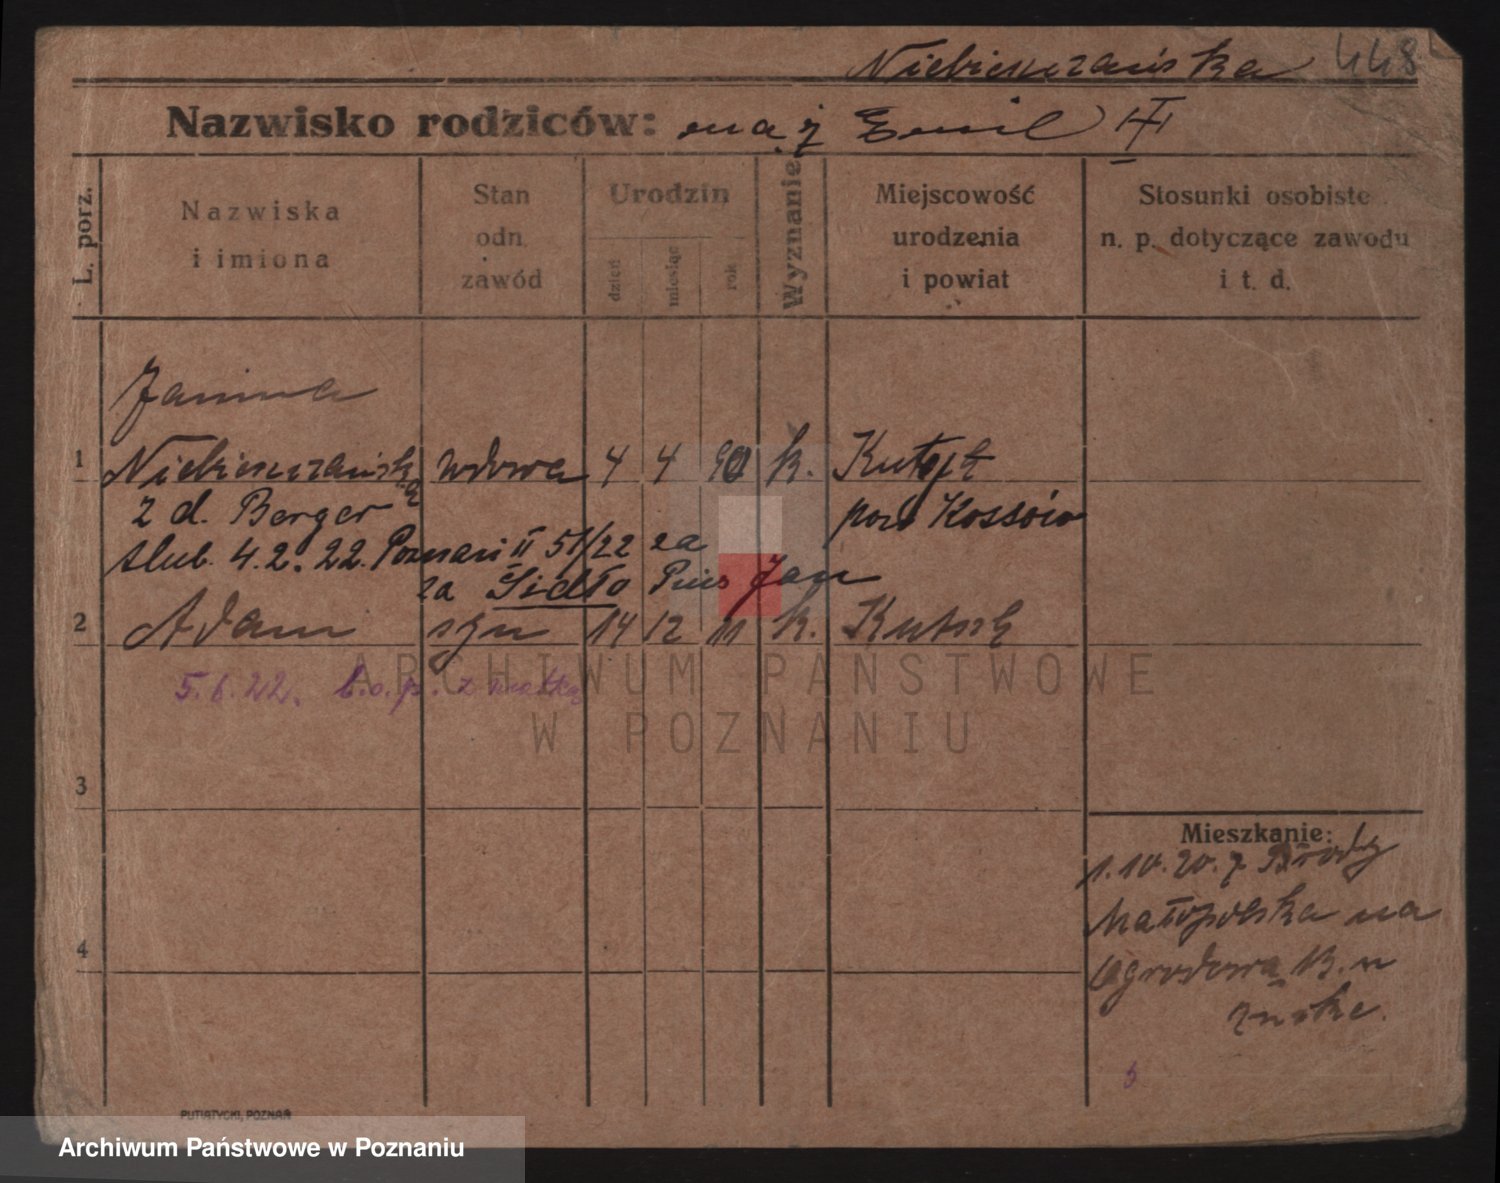 Niebieszczańska 448
Nazwisko rodziców: mąż Emil
L. porz.
Nazwiska
i imiona
Stan
odn.
zawód
Urodzin
dzień
miesiąc
rok
Wyznanie
Miejscowość
urodzenia
i powiat
Stosunki osobiste
n. p. dotyczące zawodu
i t. d.
Janina
1 Niebieszczańska wdowa 4 4 90 k. Kuty
z d. Berger pow Kossów
ślub. 4.2.22. Poznań II 51/22 za
za Sidło Pius Jan
2 Adam syn 14 12 11 k. Kuty
5.6.22. z matką
ARCHIWUM PAŃSTWOWE
W POZNANIU
3
Mieszkanie:
1.10.20. z Brody
Małopolska na
Ogrodowa 13. u
4
PUTIATYCKI, POZNAŃ
Archiwum Państwowe w Poznaniu